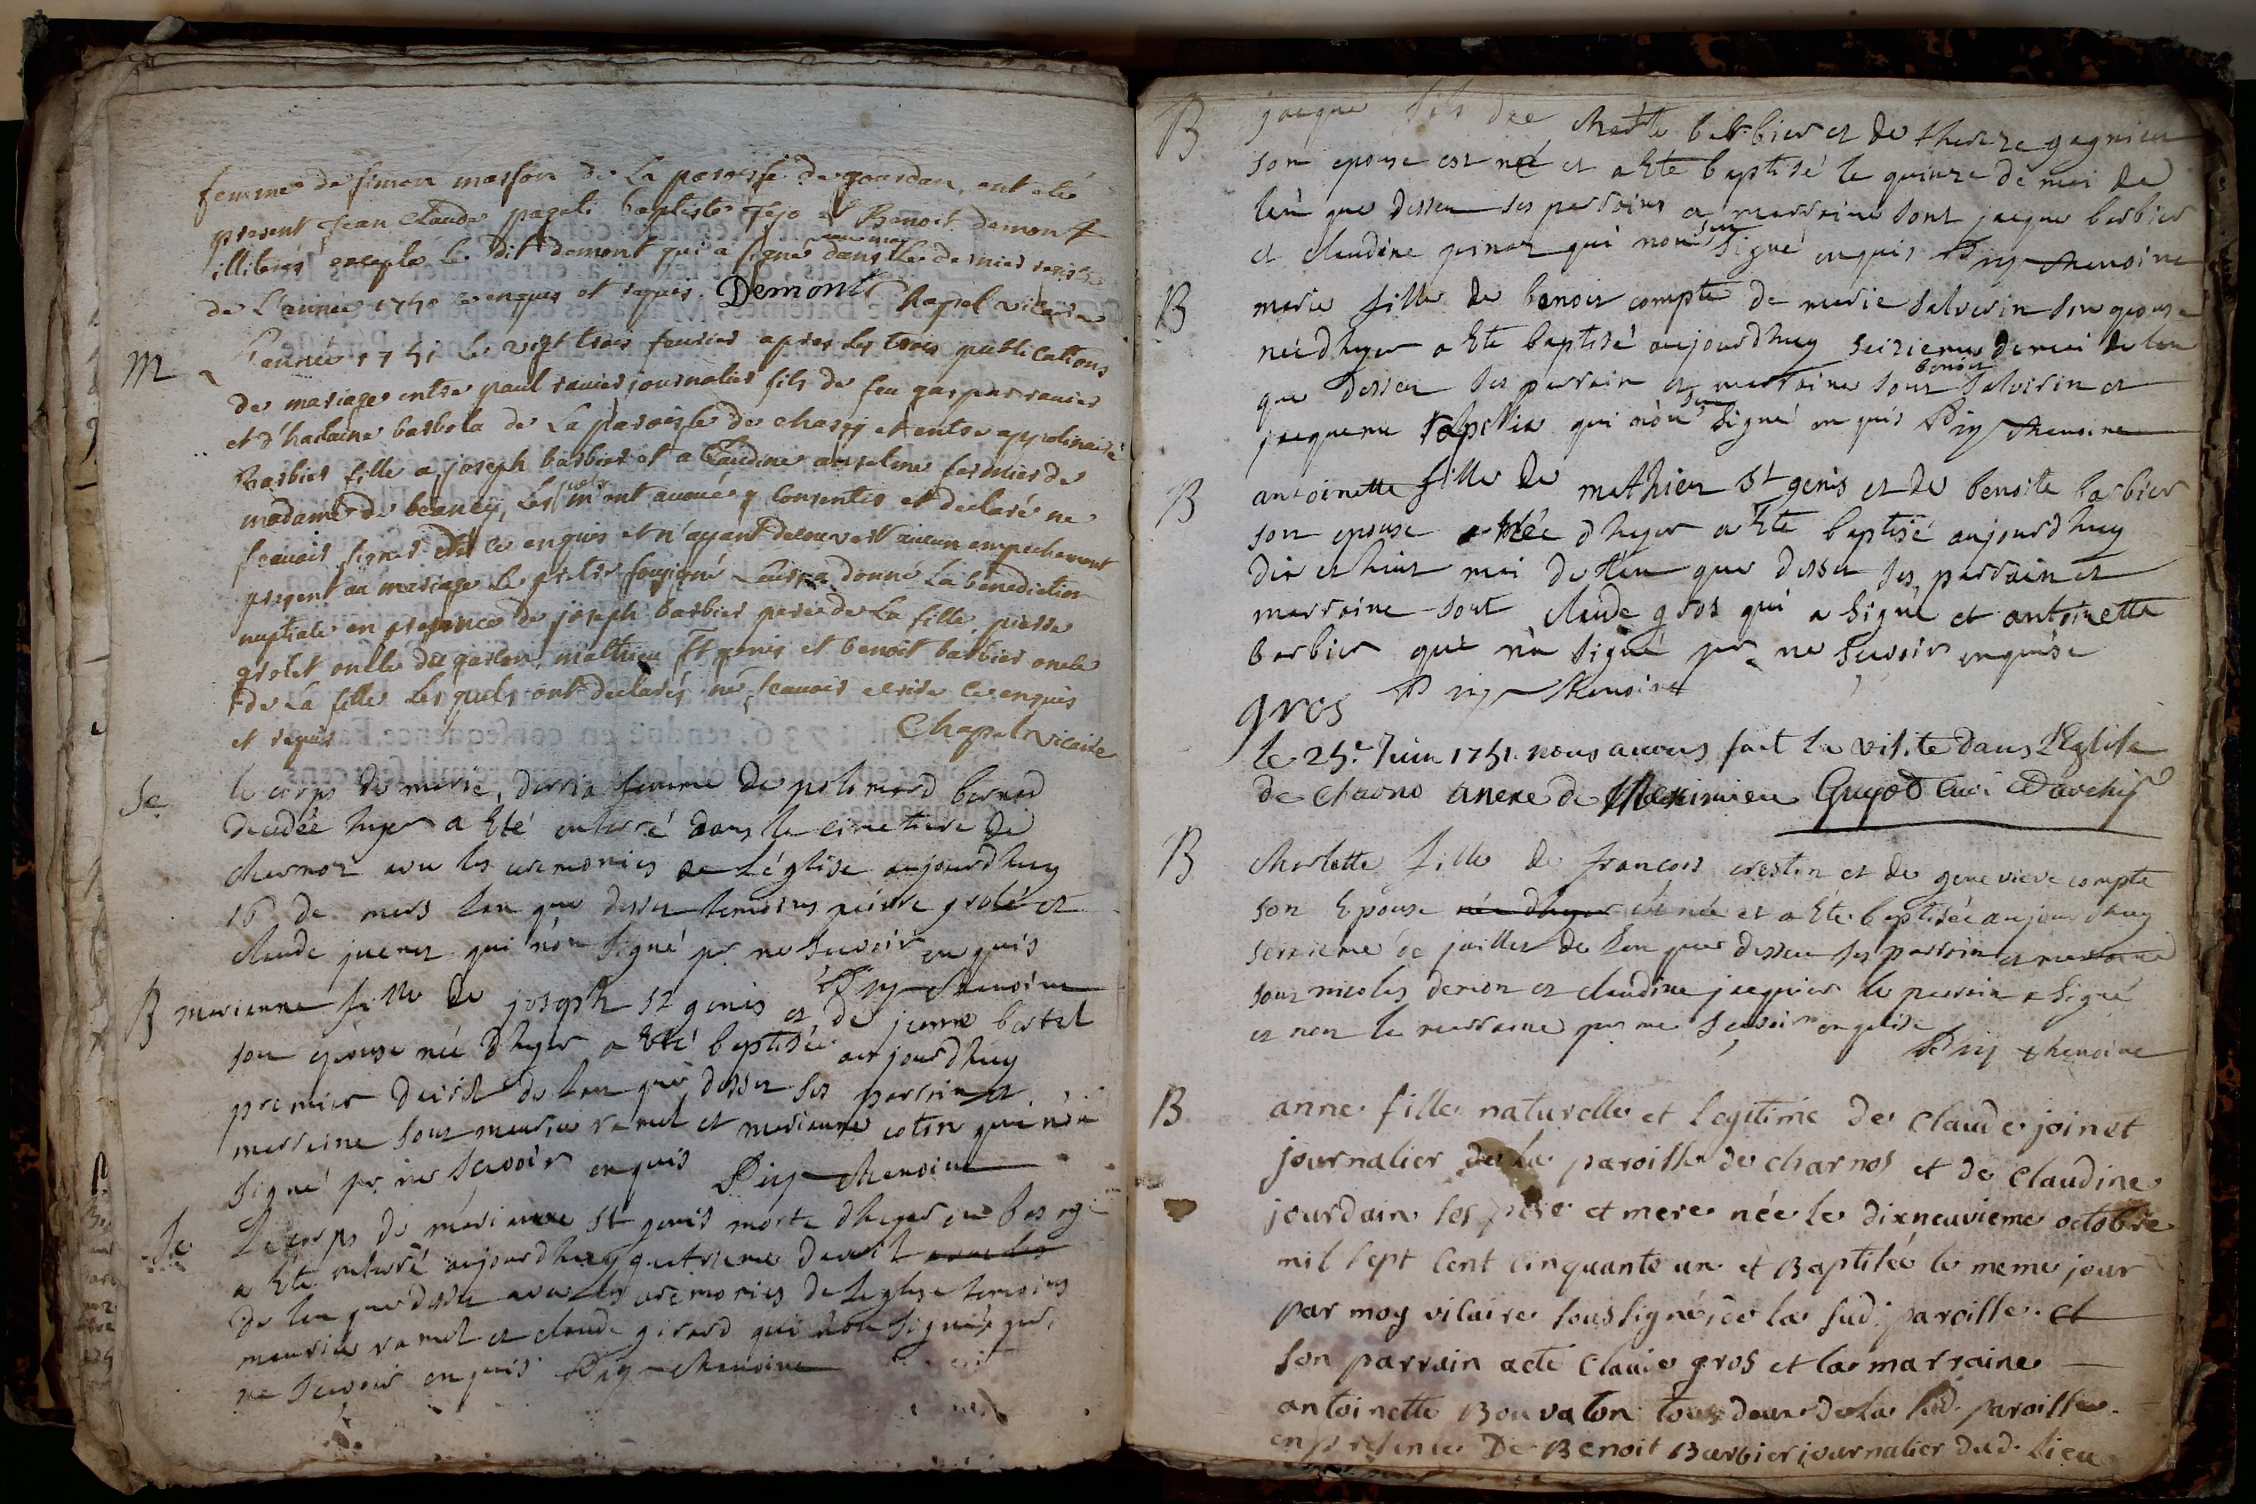 femme de simon masson de La paroisse de gourdan, ont etée
present Jean Claude pageli baptiste fejo et Benoit demont
illiterés excepté le Dit demont qui a signé dans le dernier
de L'année 1750 ce enquis et requis. Demont Chapel vicaire
M
L'année 1751 le vegt trois feurier apres les trois publications
de mariage entre paul ranier journalier fils de feu gaspar ranier
et d' barbola de La paroisse de chasey et entre appolinaire
Barbier fille a joseph barbier et a Claudine anselme fermier de
madame de beaney, Les m'ont auouée y Consentir et declaré ne
scauoir signer ce enquis et n'ayant decouvert aucun empechement
present au mariage Le pretre sousigné Leurs a donné La benediction
nuptiale en presence de joseph barbier pere de La fille pierre
grolet oncle du garson, mathieu St genis et benoit barbier oncle
de La fille Lesquels ont declarés ne scauoir ecrire ce enquis
et requis Chapel vicaire
Se
le corps de marie, femme de bernard
decedée hyer a Eté enterré dans le cimetiere de
charnoz avec les ceremonies de L'église aujourdhuy
16 de mars Lan que dessu temoins pierre grolé et
claude juenet qui n'on signé pr ne scavoir enquis
Pry chanoine
B
marianne fille de joseph St genis et de jeanne bertet
son epouse née dhyer a Eté baptisée aujourdhuy
premier davril de Lan que dessu ses parrain et
marraine sont maurice ramel et marianne cotin qui n'on
signé pr ne scavoir enquis Pry chanoine
Se
Le corps de marianne St genis morte dhyer en bas age
a Eté enterré aujourdhuy quatrieme davril avec les
de Lan que dessu avec les ceremonies de Leglise temoins
maurice ramel et claude girard qui n'on signé pr
ne scavoir enquis Pry chanoine
B
jacque fils de charle barbier et de therese gagnieu
son epouse est né et a Eté baptisé le quinze de mai de
lan que dessu ses parrains et marraine sont jacque barbier
et claudine pinaz qui non signé enquis Pry chanoine
B
marie fille de benoit compte de marie salverin son epouse
née dhyer a Eté baptisé aujourdhuy seizieme de mai de lan
benoit
que dessu ses parrain et marraine sont salverin et
jacqueme qui non signé enquis Pry chanoine
B
antoinette fille de mathieu St genis et de benoite barbier
son epouse née dhyer a Eté baptisé aujourdhuy
dix et huit mai de Lan que dessu ses parrain et
marraine sont claude gros qui a signé et antoinette
barbier qui n'a signé pr ne scavoir enquise
gros Pry chanoine
le 25e Juin 1751 nous auons fait la visite dans L'Eglise
de charno anexe de Meximieu Guyot Curé D'archip
B
charlotte fille de francois creston et de genevieve compte
son Epouse née dhyer est née et a Eté baptisée aujourdhuy
seizieme de juillet de Lan que dessu ses parrain et marraine
sont nicolas derion et claudine jacquier le parrain a signé
et non la marraine pr ne scavoir enquise
Pry chanoine
B
anne fille naturelle et Legitime de Claude joinet
journalier de La paroisse de charnos et de Claudine
jourdain ses pere et mere née le dixneuvieme octobre
mil sept cent cinquante un et Baptisée le meme jour
par moy vicaire soussigné de la sud. paroisse. et
son parrain a eté Claude gros et la marraine
antoinette Bouvaton tous deux de la sud. paroisse
en presence De Benoit Barbier journalier dud. Lieu